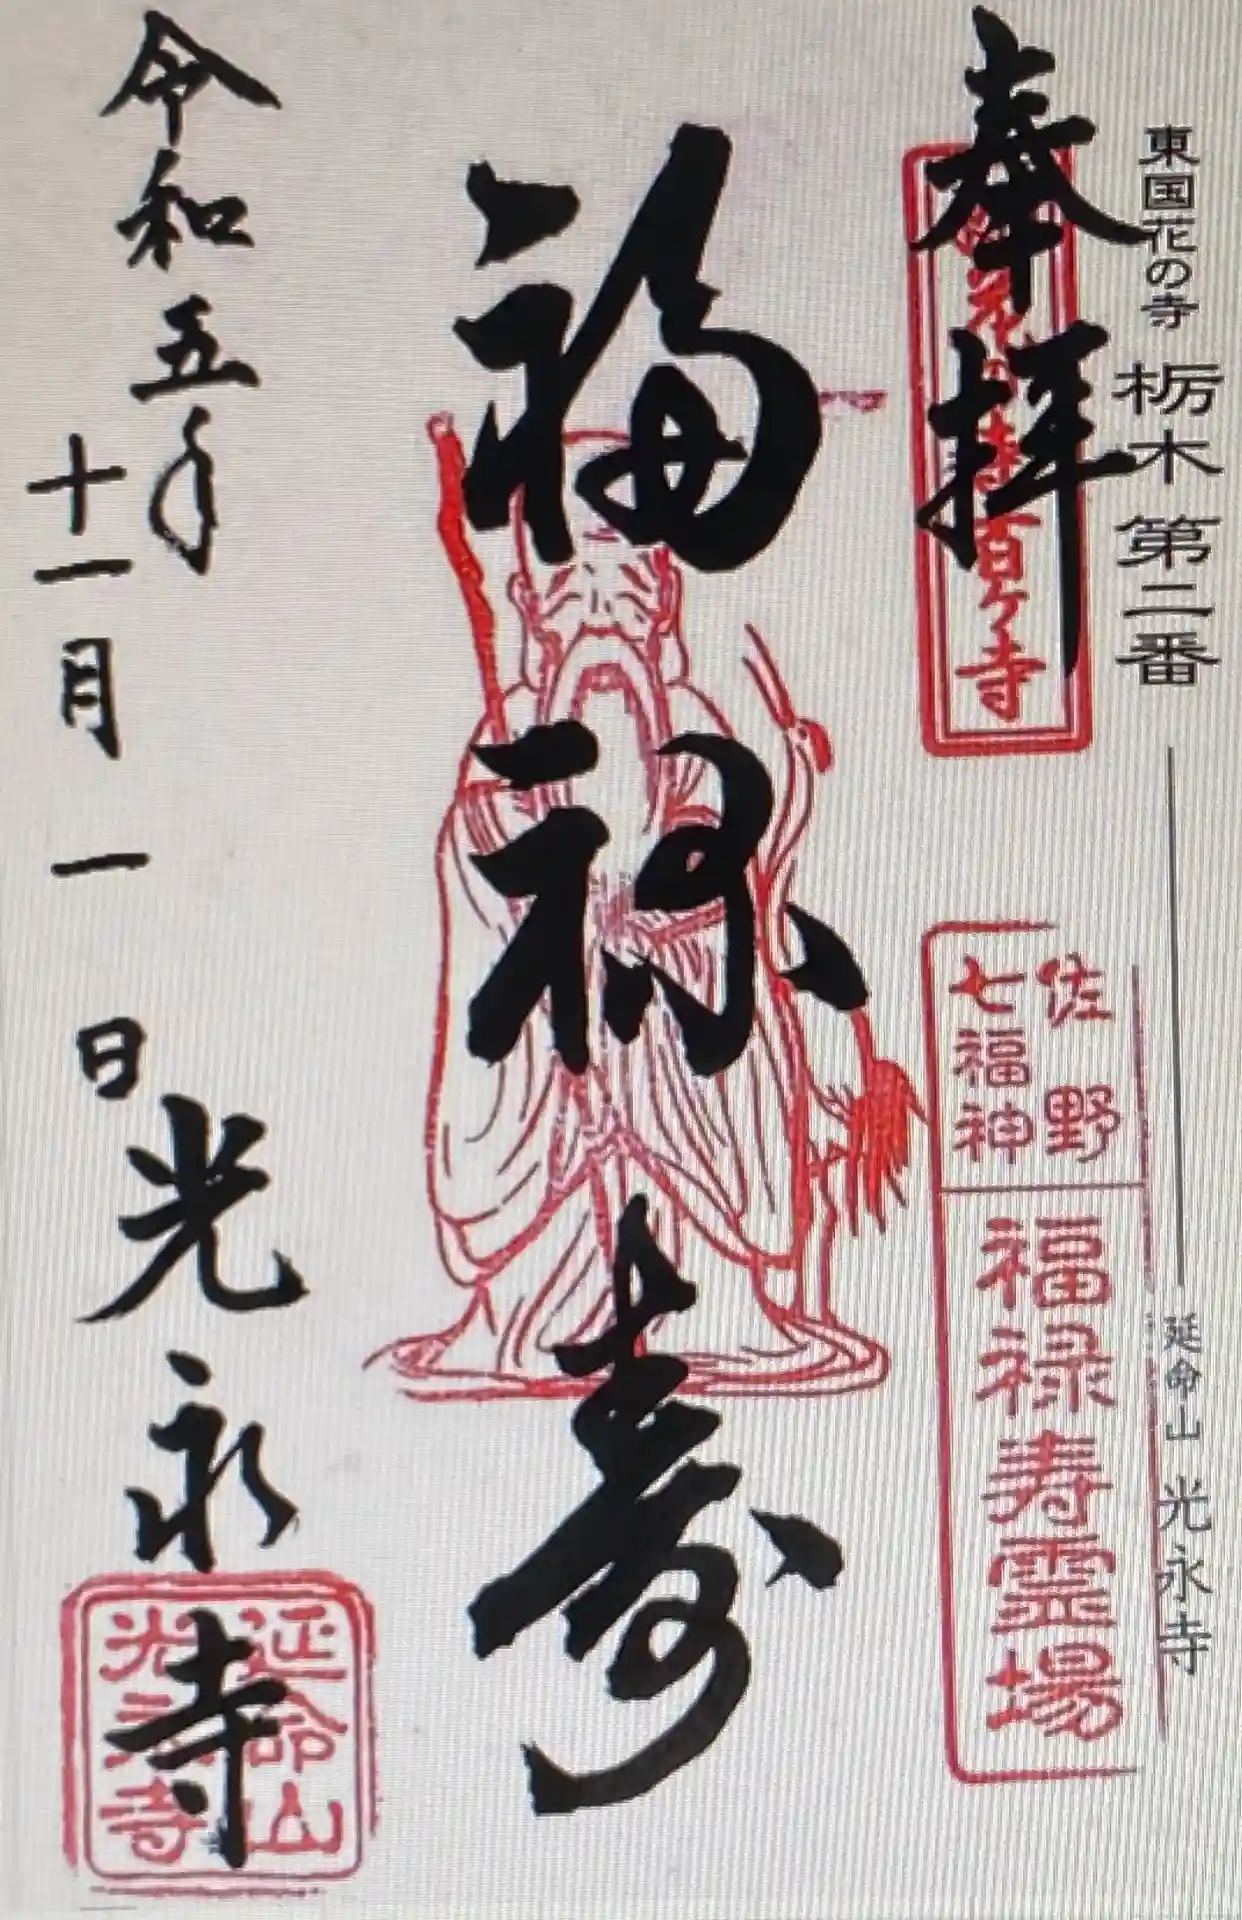 東国花の寺 栃木 第二番
延命山 光永寺
奉拝
花の寺百ケ寺
佐野
七福神
福禄寿霊場
福禄寿
令和五年
十一月一日
光永寺
延命山
光永寺